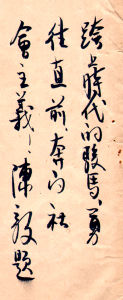 跨上時代的駿馬、勇
往直前、奔向社
會主義、陳毅題